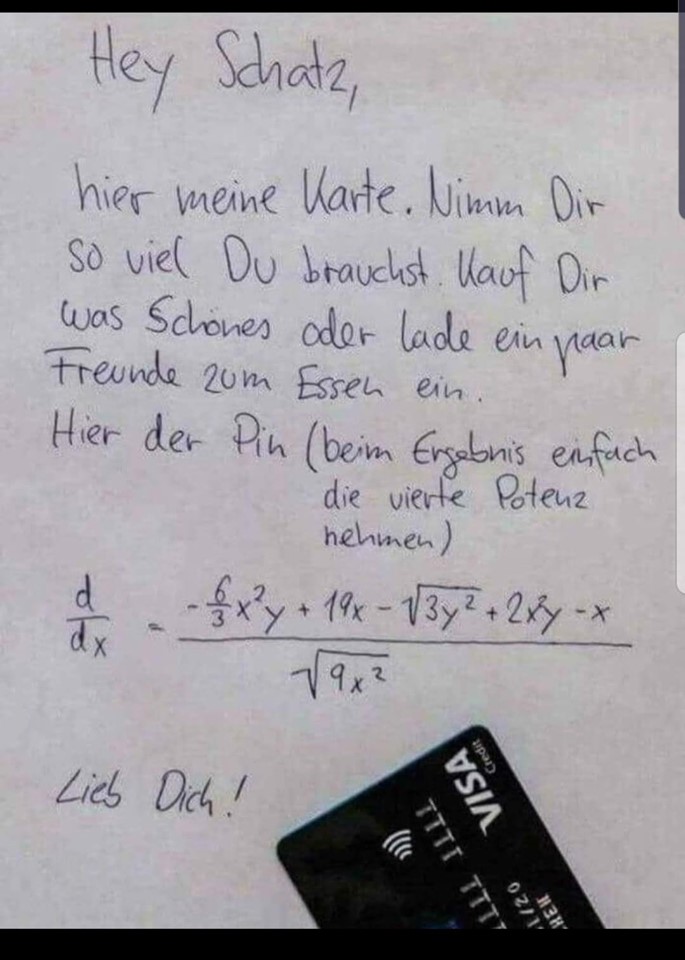 Hey Schatz,
hier meine Karte. Nimm Dir
so viel Du brauchst. Kauf Dir
was Schönes oder lade ein paar
Freunde zum Essen ein.
Hier der Pin (beim Ergebnis einfach
die vierte Potenz
nehmen)
d/dx = (-6/3 x²y + 19x - √(3y²) + 2x²y - x) / √(9x²)
Lieb Dich!
VISA
Credit